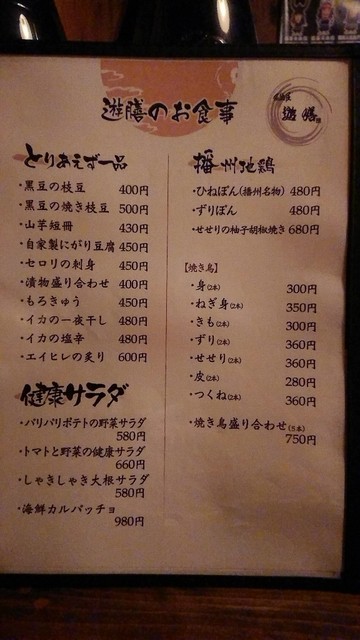 遊膳のお食事
遊膳
とりあえず一品
・黒豆の枝豆 400円
・黒豆の焼き枝豆 500円
・山芋短冊 430円
・自家製にがり豆腐 450円
・セロリの刺身 450円
・漬物盛り合わせ 400円
・もろきゅう 450円
・イカの一夜干し 480円
・イカの塩辛 480円
・エイヒレの炙り 600円
健康サラダ
・パリパリポテトの野菜サラダ
580円
・トマトと野菜の健康サラダ
660円
・しゃきしゃき大根サラダ
580円
・海鮮カルパッチョ
980円
播州地鶏
・ひねぽん(播州名物) 480円
・ずりぽん 480円
・せせりの柚子胡椒焼き 680円
【焼き鳥】
・身(2本) 300円
・ねぎ身(2本) 350円
・きも(2本) 300円
・ずり(2本) 360円
・せせり(2本) 360円
・皮(2本) 280円
・つくね(2本) 360円
・焼き鳥盛り合わせ(5本)
750円